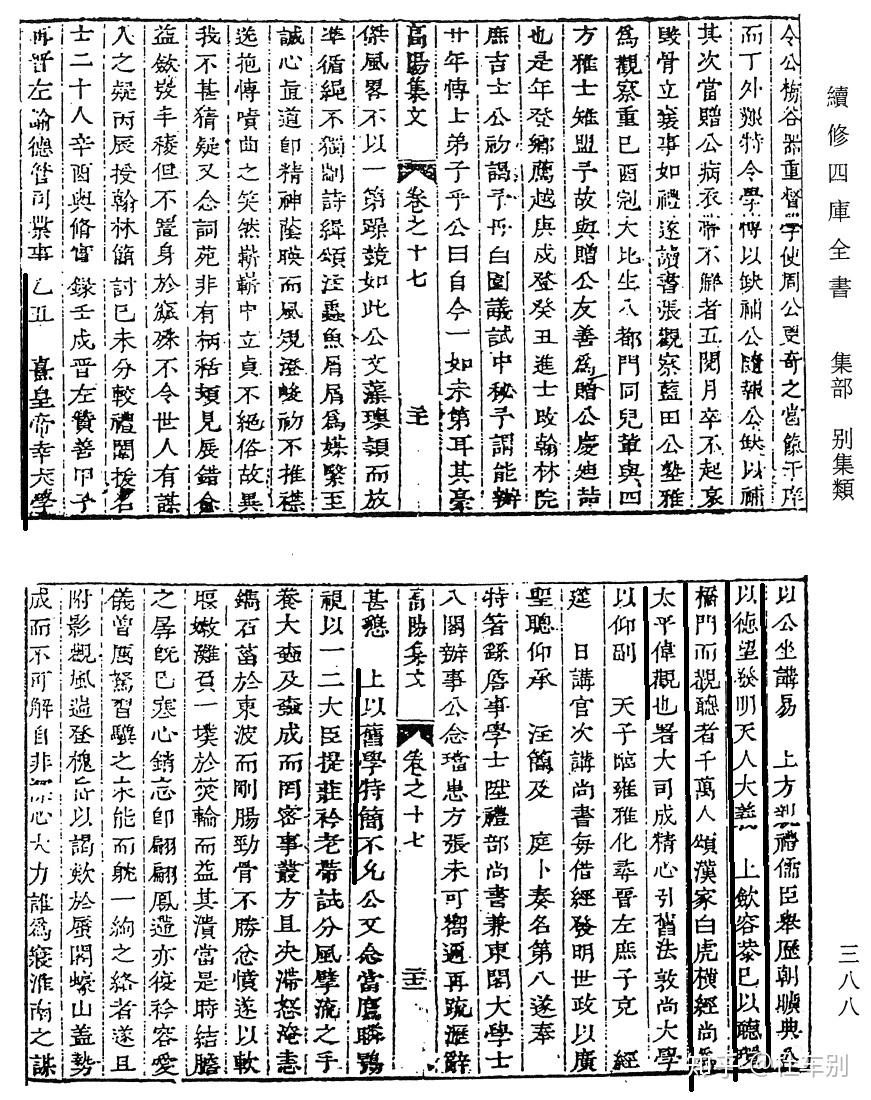 續修四庫全書 集部 別集類
令公栴谷器重督學使周公更奇之當餼于庠
而丁外艱特令學博以缺補公隨報公缺以補
其次當贈公病衣帶不解者五閱月卒不起哀
毀骨立襄事如禮遂讀書張觀察藍田公塾雅
為觀察重己酉冠大比生入都門同兒輩與四
方雅士雉盟予故與贈公友善為贈公慶迪喆
也是年登鄉薦越庚戍登癸丑進士改翰林院
庶吉士公初謁予再白園議試中秘予謂能辦
廿年傳上弟子乎公曰自今一如未第耳其豪
高陽集文 卷之十七
傑風畧不以一第躁競如此公文藻瓌頴而放
準循繩不獨劘詩緝頌注蟲魚屑屑為媒緊至
誠心直道卽精神蔭暎而風規澄峻初不推襟
送抱傅嘖曲之笑然嶄嶄中立貞不絕俗故異
我不甚猜疑又念詞苑非有柄頻見展錯
益斂手稜但不置身於殊不令世人有謀
人之疑丙辰授翰林簡討已未分較禮闈拔名
士二十人辛酉與脩實錄壬戍晉左贊善甲子
再晉左諭德管司業事乙丑 熹皇帝幸太學
以公坐講易 上方親禮儒臣舉歷朝曠典公
以德望發明天人大義 上歛容恭己以聽環
橋門而觀聽者千萬人頌漢家白虎橫經尚
太平偉觀也署大司成精心引舊法敦尚大學
以仰副 天子臨雍雅化尋晉左庶子充 經
筵 日講官次講尚書每借經發明世政以廣
聖聰仰承 注簡及 庭卜奏名第八遂奉
特著錄詹事學士陞禮部尚書兼東閣大學士
入閣辦事公念璫患方張未可嚮邇再疏瀝辭
高陽集文 卷之十七
甚懇 上以舊學特簡不允公又念當鷹瞵鶚
視以一二大臣提莊衿老帶試分風擘流之手
養大壺及壺成而罔密事叢方且失滯怒淹恚
鐫石菑於東波而剛腸勁骨不勝忿憤遂以軟
嫩灘頁一墣於熒輪而益其潰當是時結膽
之孱旣已寒心銷忘卽翩翩鳳遣亦役衿容愛
儀曾厲駑習驥之未能而毗一絢之絳者遂且
附影觀風造登槐岳以謁欵於蜃閣蠔山蓋勢
成而不可解自非深心大力誰為寢淮南之謀
三八八
知乎 @杜车别